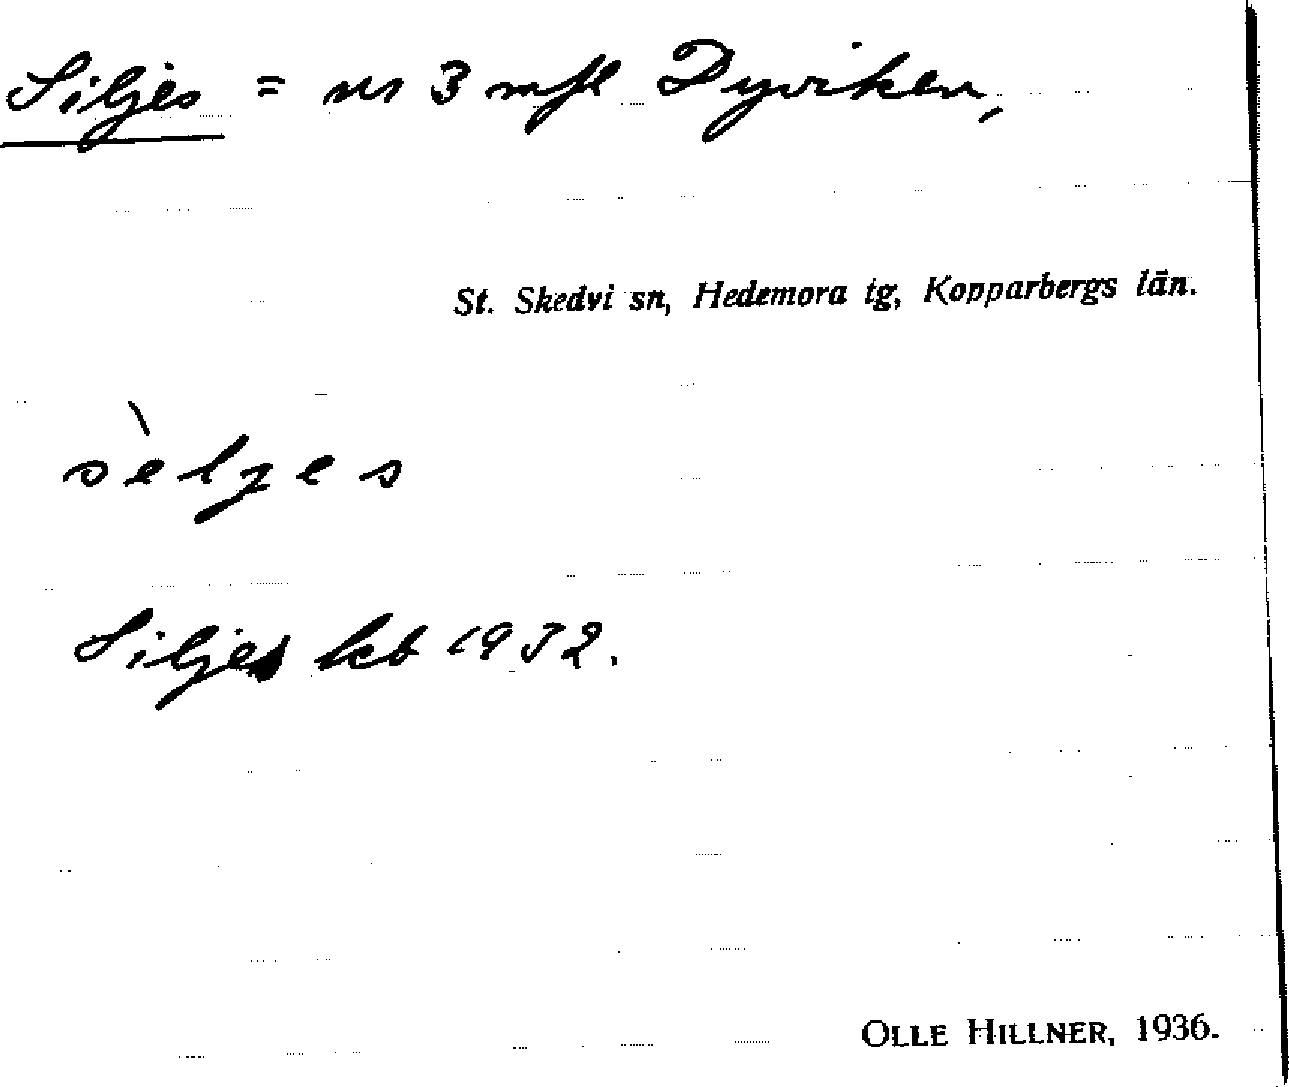 Siljes = nr 3 mfl Dyviken,
St. Skedvi sn, Hedemora tg, Kopparbergs län.
sèljes
Siljes kb 1932.
OLLE HILLNER, 1936.